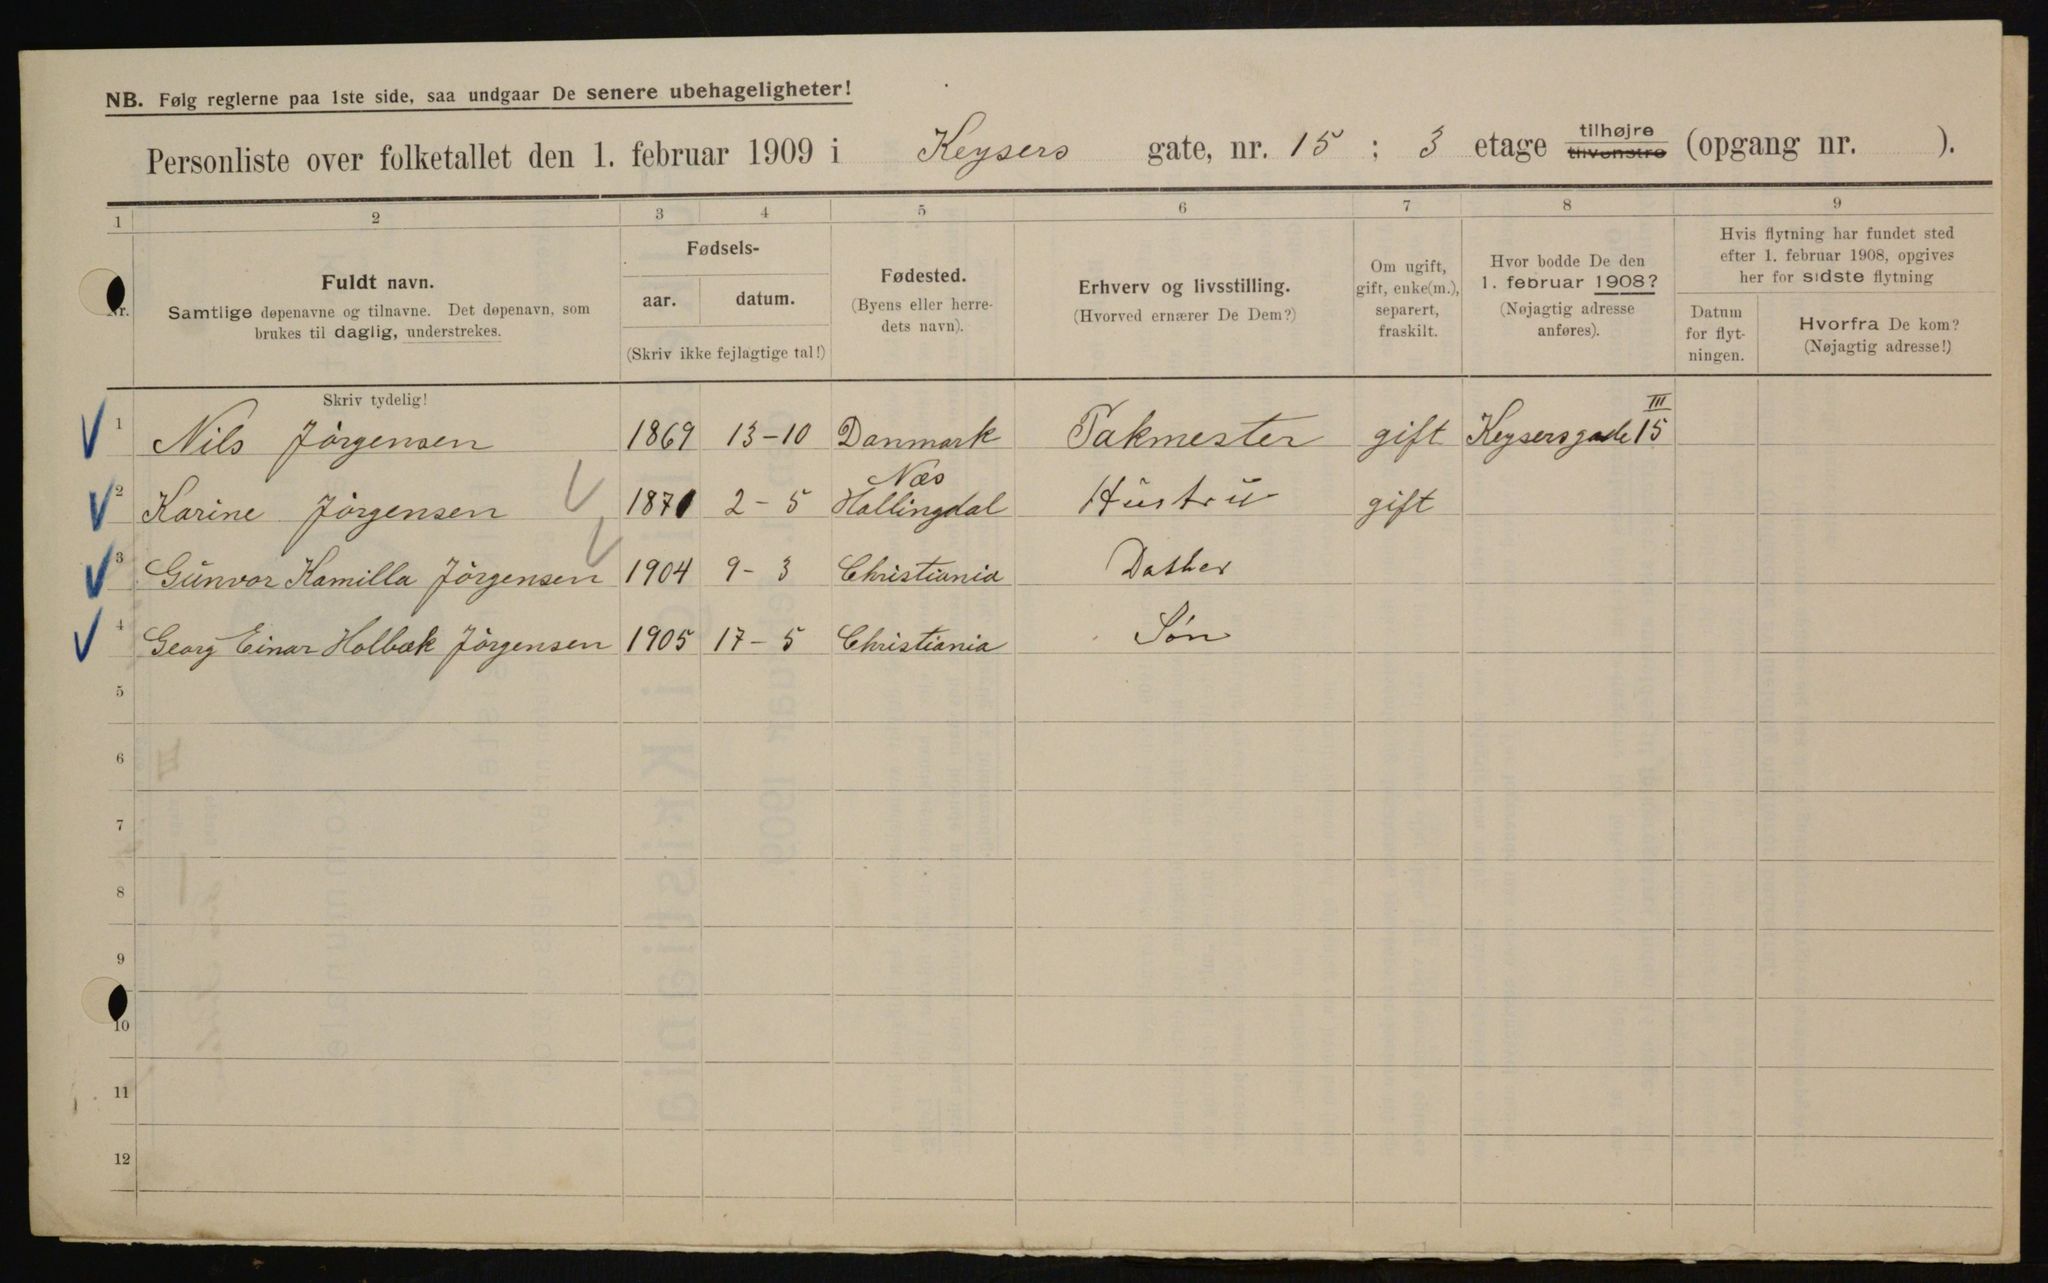 NB. Følg reglerne paa 1ste side, saa undgaar De senere ubehageligheter!
Personliste over folketallet den 1. februar 1909 i Keysers gate, nr. 15 ; 3 etage tilhøjre tilvenstre (opgang nr. ).
1 2 3 4 5 6 7 8 9
Nr.
Fuldt navn.
Samtlige døpenavne og tilnavne. Det døpenavn, som
brukes til daglig, understrekes.
Fødsels-
aar. datum.
(Skriv ikke fejlagtige tal!)
Fødested.
(Byens eller herre-
dets navn).
Erhverv og livsstilling.
(Hvorved ernærer De Dem?)
Om ugift,
gift, enke(m.),
separert,
fraskilt.
Hvor bodde De den
1. februar 1908?
(Nøjagtig adresse
anføres).
Hvis flytning har fundet sted
efter 1. februar 1908, opgives
her for sidste flytning
Datum
for flyt-
ningen.
Hvorfra De kom?
(Nøjagtig adresse!)
Skriv tydelig!
1 Nils Jørgensen 1869 13-10 Danmark Takmester gift Keysersgade 15 III
2 Karine Jørgensen 1871 2-5 Næs Hallingdal Hustru gift
3 Gunvor Kamilla Jørgensen 1904 9-3 Christiania Datter
4 Georg Einar Holbæk Jørgensen 1905 17-5 Christiania Søn
5
6
7
8
9
10
11
12